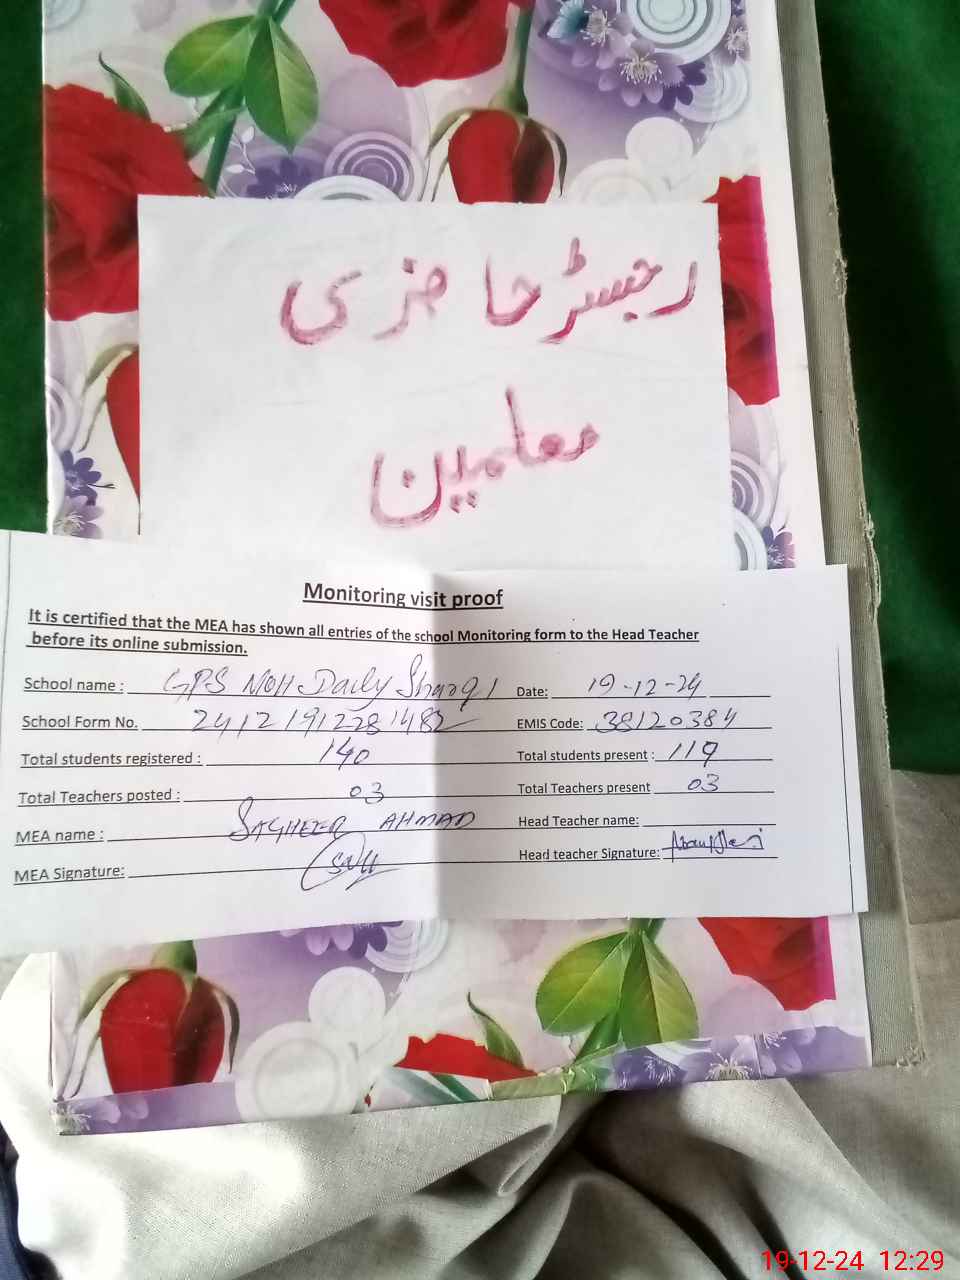 رجسٹر حاضری
معلمین
Monitoring visit proof
It is certified that the MEA has shown all entries of the school Monitoring form to the Head Teacher
before its online submission.
School name : GPS NOH Daily Sharqi Date: 19-12-24
School Form No. 24121912281482 EMIS Code: 38120384
Total students registered : 140 Total students present : 119
Total Teachers posted : 03 Total Teachers present 03
MEA name : SAGHEER AHMAD Head Teacher name:
MEA Signature: Head teacher Signature:
19-12-24 12:29